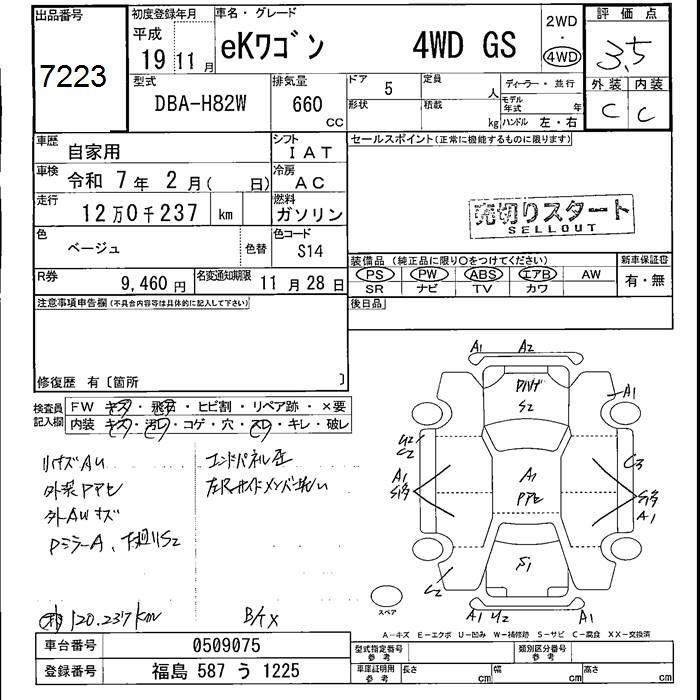 出品番号
7223
初度登録年月
平成
19 11 月
車名・グレード
eKワゴン 4WD GS
2WD
・
4WD
評価点
3.5
外装 内装
C C
型式
DBA-H82W
排気量
660
CC
ドア 5
形状
定員 人
積載 kg
ディーラー・並行
モデル年式 年
ハンドル 左・右
車歴
自家用
シフト
IAT
車検 令和 7年 2月( 日)
冷房
AC
走行
12万0千237 km
燃料
ガソリン
色
ベージュ
色替
色コード
S14
R券
9,460 円
名変通知期限
11月 28日
セールスポイント(正常に機能するものに限ります)
売切りスタート
SELLOUT
装備品(純正品に限り○をつけてください)
PS PW ABS エアB AW
SR ナビ TV カワ
新車保証書
有・無
後日品
注意事項申告欄(不具合内容等は具体的に記入して下さい)
修復歴 有〔箇所 〕
検査員記入欄
FW キズ・飛石・ヒビ割・リペア跡・×要
内装 キズ・汚レ・コゲ・穴・スレ・キレ・破レ
リヤガラスAU
外装PPアセ
外AWキズ
PミラーA、下廻りS2
エンドパネル歪
120.237km
B/TX
A1 A2
S2
A1
U2
C2
A1
C3
A1
PPアセ
A1
S1
C2
A1 U2 A1
スペア
A-キズ E-エクボ U-凹み W-補修跡 S-サビ C-腐食 XX-交換済
車台番号 0509075
登録番号 福島 587 う 1225
型式指定番号
参考
類別区分番号
参考
車庫証明用
参考
長さ cm
幅 cm
高さ cm